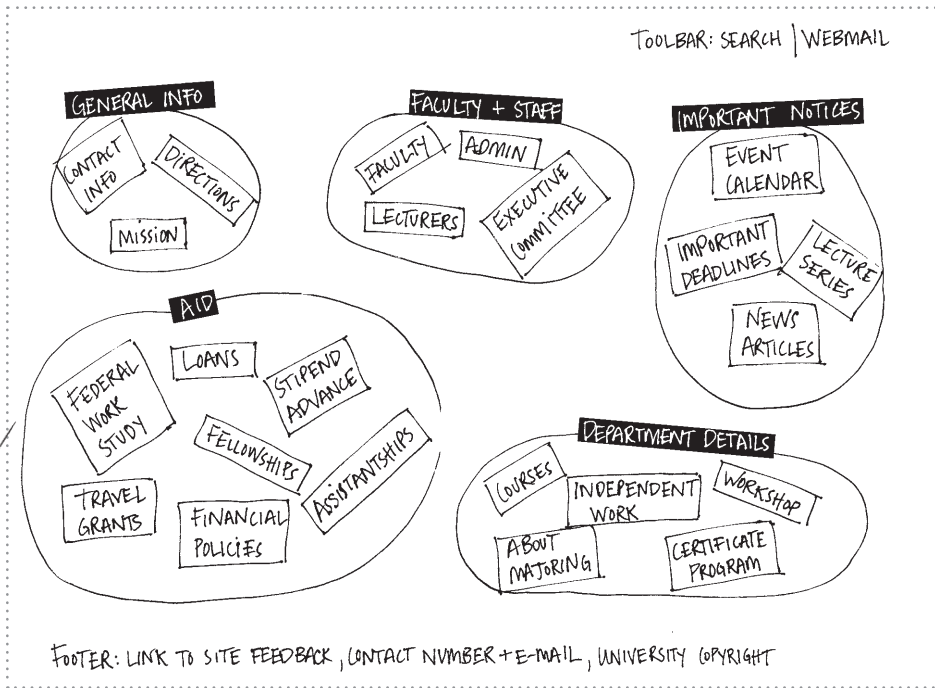 TOOLBAR: SEARCH | WEBMAIL
GENERAL INFO
CONTACT
INFO
DIRECTIONS
MISSION
FACULTY + STAFF
FACULTY
ADMIN
LECTURERS
EXECUTIVE
COMMITTEE
IMPORTANT NOTICES
EVENT
CALENDAR
IMPORTANT
DEADLINES
LECTURE
SERIES
NEWS
ARTICLES
AID
FEDERAL
WORK
STUDY
LOANS
STIPEND
ADVANCE
FELLOWSHIPS
ASSISTANTSHIPS
TRAVEL
GRANTS
FINANCIAL
POLICIES
DEPARTMENT DETAILS
COURSES
INDEPENDENT
WORK
WORKSHOP
ABOUT
MAJORING
CERTIFICATE
PROGRAM
FOOTER: LINK TO SITE FEEDBACK, CONTACT NUMBER + E-MAIL, UNIVERSITY COPYRIGHT